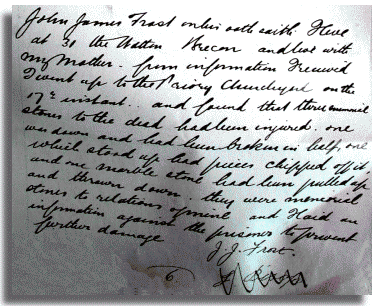 John James Frost on his oath saith. I live
at 30 the Watton Brecon and live with
my Mother. from information I received
I went up to the Priory Churchyard on the
17th instant. and found that three memorial
stones to the dead had been injured. one
was down and had been broken in half, one
which stood up had pieces chipped off it
and one marble stone had been pulled up
and thrown down. they were memorial
stones to relations of mine and I laid an
information against the prisoner to prevent
further damage
J. J. Frost.
6